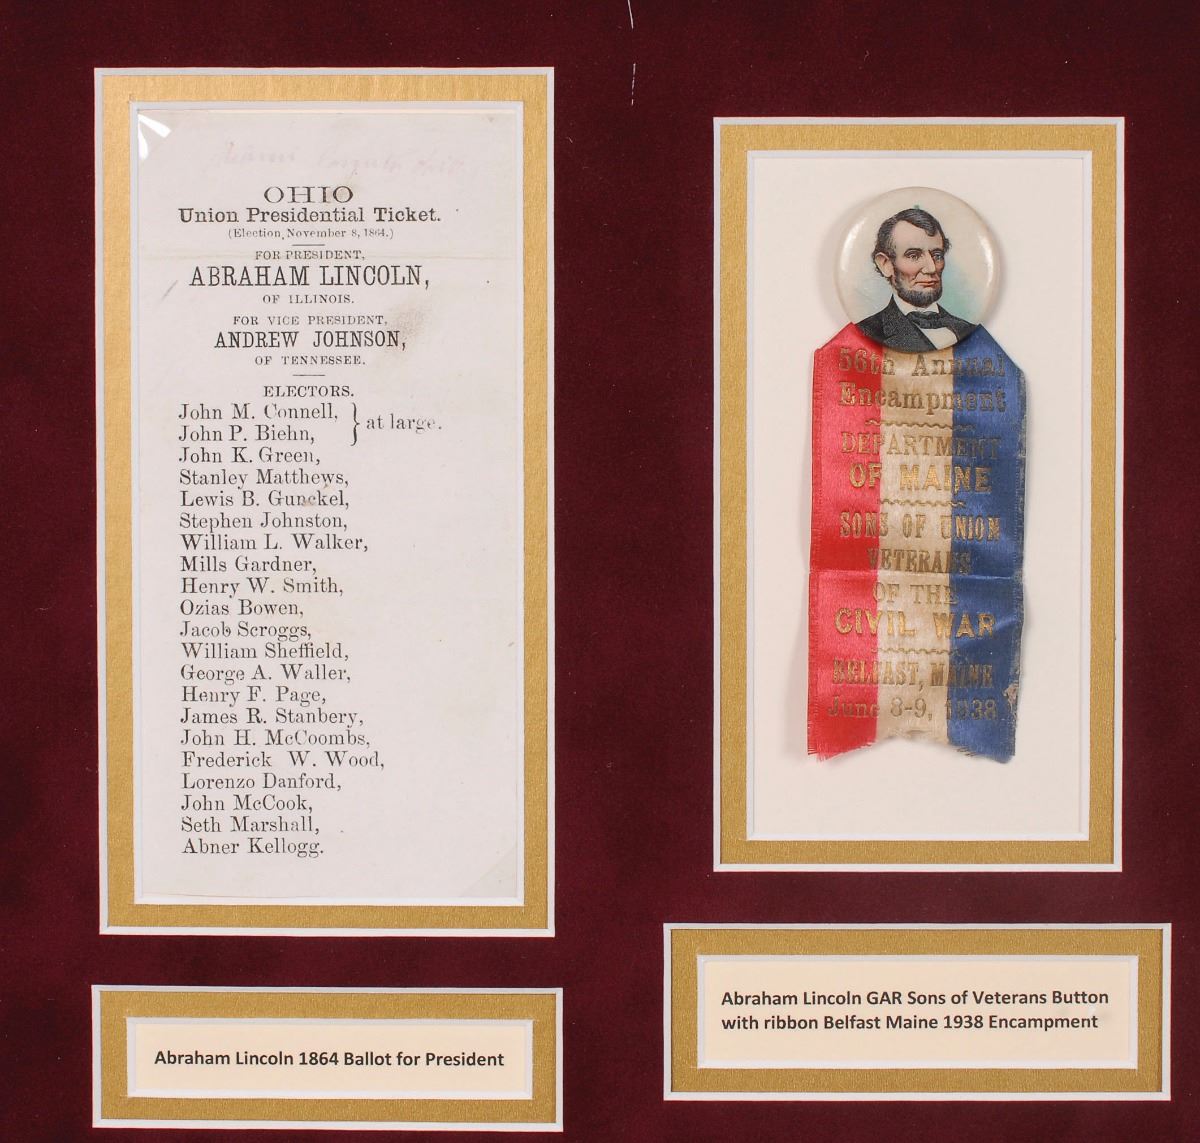 OHIO
Union Presidential Ticket.
(Election, November 8, 1864.)
FOR PRESIDENT,
ABRAHAM LINCOLN,
OF ILLINOIS.
FOR VICE PRESIDENT,
ANDREW JOHNSON,
OF TENNESSEE.
ELECTORS.
John M. Connell,
John P. Biehn, } at large.
John K. Green,
Stanley Matthews,
Lewis B. Gunckel,
Stephen Johnston,
William L. Walker,
Mills Gardner,
Henry W. Smith,
Ozias Bowen,
Jacob Scroggs,
William Sheffield,
George A. Waller,
Henry F. Page,
James R. Stanbery,
John H. McCoombs,
Frederick W. Wood,
Lorenzo Danford,
John McCook,
Seth Marshall,
Abner Kellogg.
Abraham Lincoln 1864 Ballot for President
56th Annual
Encampment
DEPARTMENT
OF MAINE
SONS OF UNION
VETERANS
OF THE
CIVIL WAR
BELFAST, MAINE
June 8-9, 1938
Abraham Lincoln GAR Sons of Veterans Button
with ribbon Belfast Maine 1938 Encampment